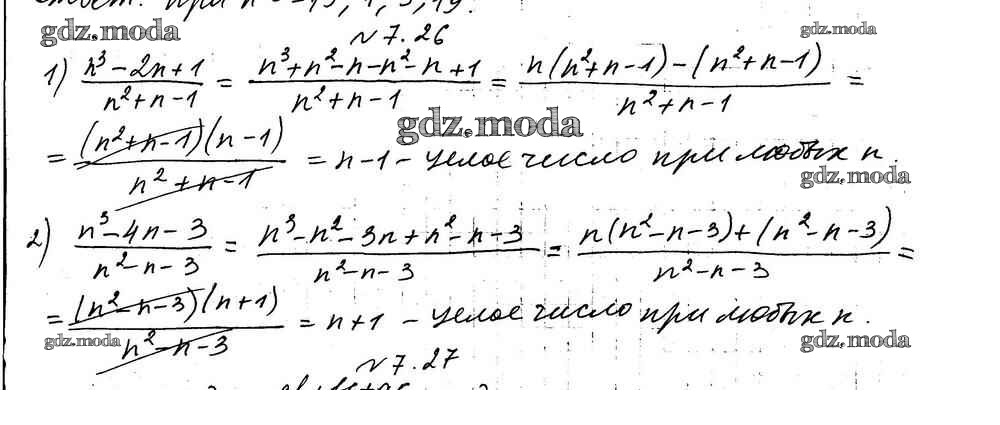 Ответ: при n = -19, 1, 3, 19.
gdz.moda
gdz.moda
№7.26
1) (n³-2n+1)/(n²+n-1) = (n³+n²-n-n²-n+1)/(n²+n-1) = (n(n²+n-1)-(n²+n-1))/(n²+n-1) =
gdz.moda
= ((n²+n-1)(n-1))/(n²+n-1) = n-1 - целое число при любых n.
gdz.moda
2) (n³-4n-3)/(n²-n-3) = (n³-n²-3n+n²-n-3)/(n²-n-3) = (n(n²-n-3)+(n²-n-3))/(n²-n-3) =
= ((n²-n-3)(n+1))/(n²-n-3) = n+1 - целое число при любых n.
gdz.moda
gdz.moda
№7.27